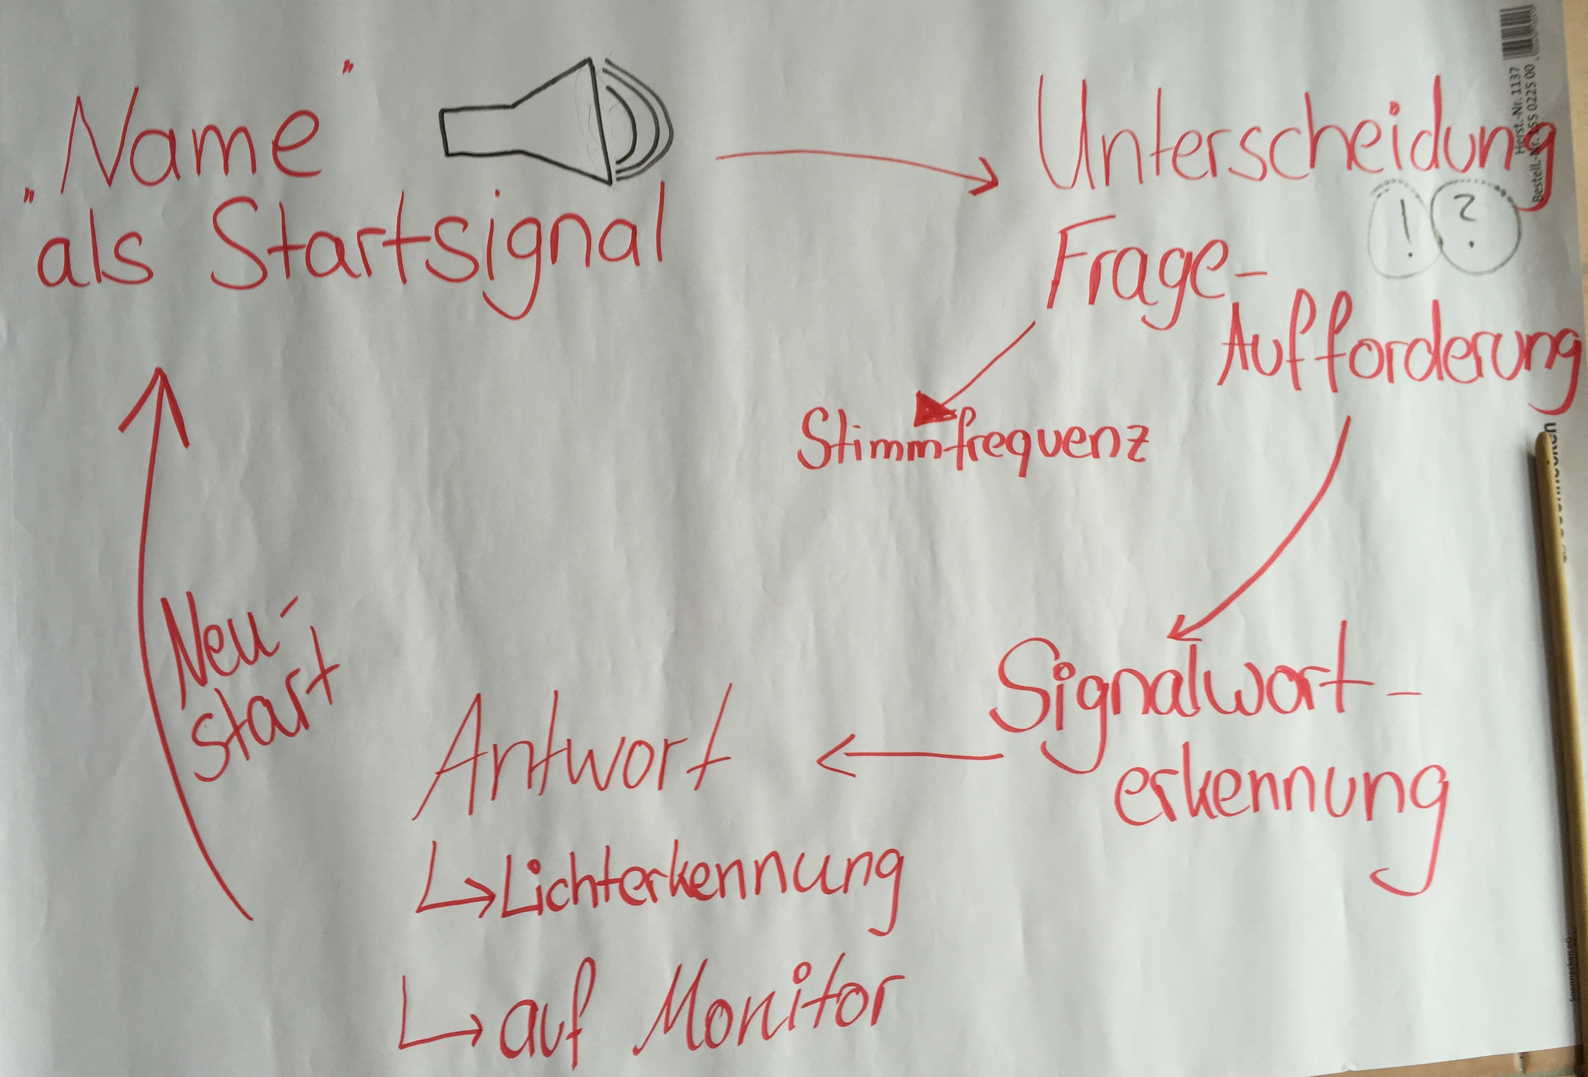 „Name"
als Startsignal
Unterscheidung
! ?
Frage-
Aufforderung
Stimmfrequenz
Signalwort-
erkennung
Antwort
↳ Lichterkennung
↳ auf Monitor
Neu-
start
Herst.-Nr. 1137